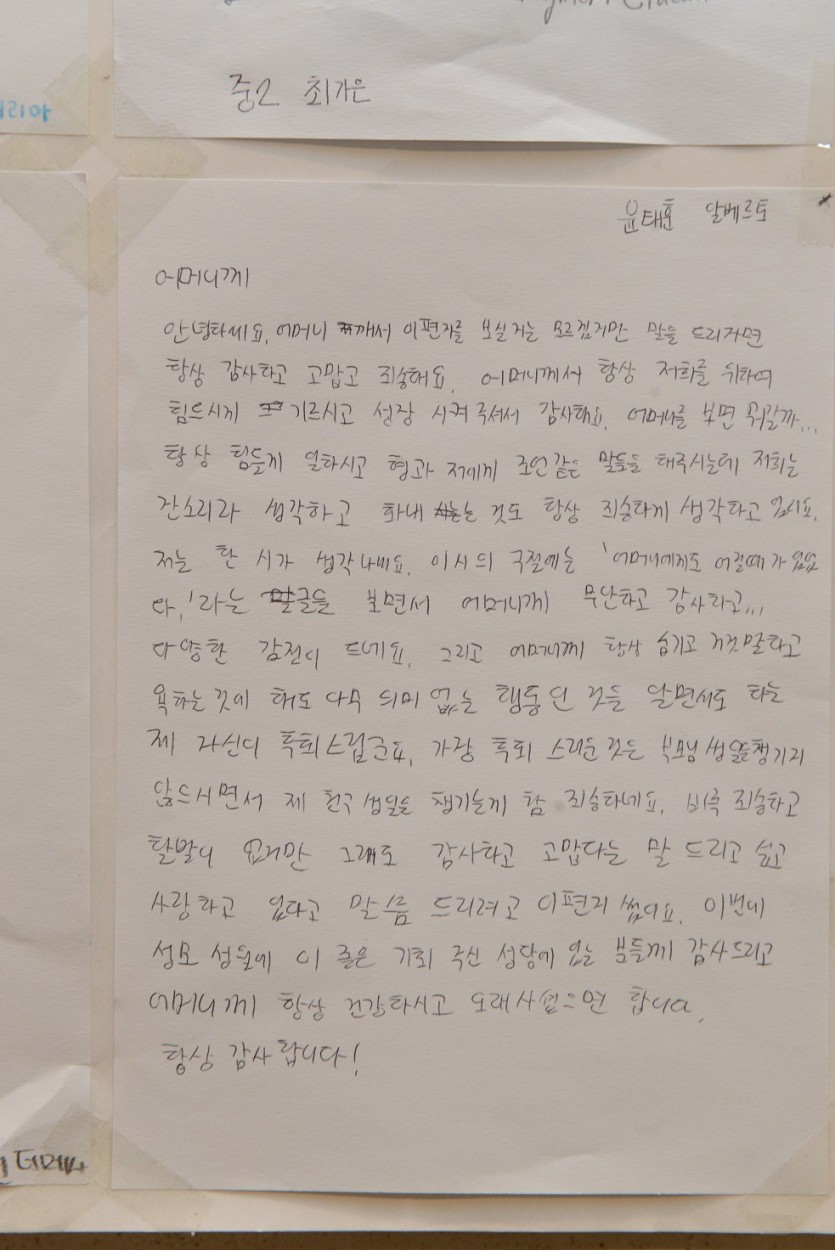 중2 최가은
윤태훈 알베르토
어머니께
안녕하세요, 어머니 께서 이편지를 보실지는 모르겠지만 말을 드리자면
항상 감사하고 고맙고 죄송해요. 어머니께서 항상 저희를 위하여
힘드시게 기르시고 성장 시켜 주셔서 감사해요. 어머니를 보면 뭐랄까...
항상 힘들게 일하시고 형과 저에게 조언같은 말들을 해주시는데 저희는
잔소리라 생각하고 화내는 것도 항상 죄송하게 생각하고 있어요.
저는 한 시가 생각나네요. 이시의 구절에는 '어머니에게도 어릴때가 있었
다.'라는 글을 보면서 어머니께 무안하고 감사하고...
다양한 감정이 드네요. 그리고 어머니께 항상 숨기고 거짓말하고
욕하는 것이 해도 아무 의미 없는 행동인 것을 알면서도 하는
제 자신이 후회스럽군요. 가장 후회 스러운 것은 부모님 생일을챙기지
않으시면서 제 친구 생일을 챙기는게 참 죄송하네요. 비록 죄송하고
할말이 없지만 그래도 감사하고 고맙다는 말 드리고 싶고
사랑하고 있다고 말씀 드리려고 이편지 썼어요. 이번에
성모 성월에 이 좋은 기회 주신 성당에 있는 분들께 감사드리고
어머니께 항상 건강하시고 오래사셨으면 합니다.
항상 감사합니다!